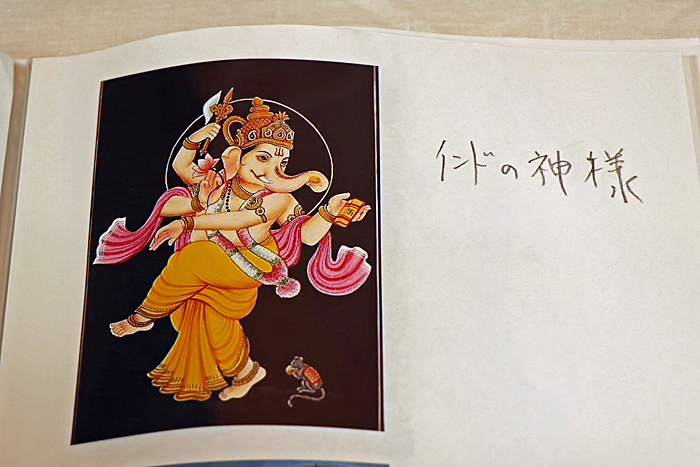 インドの神様